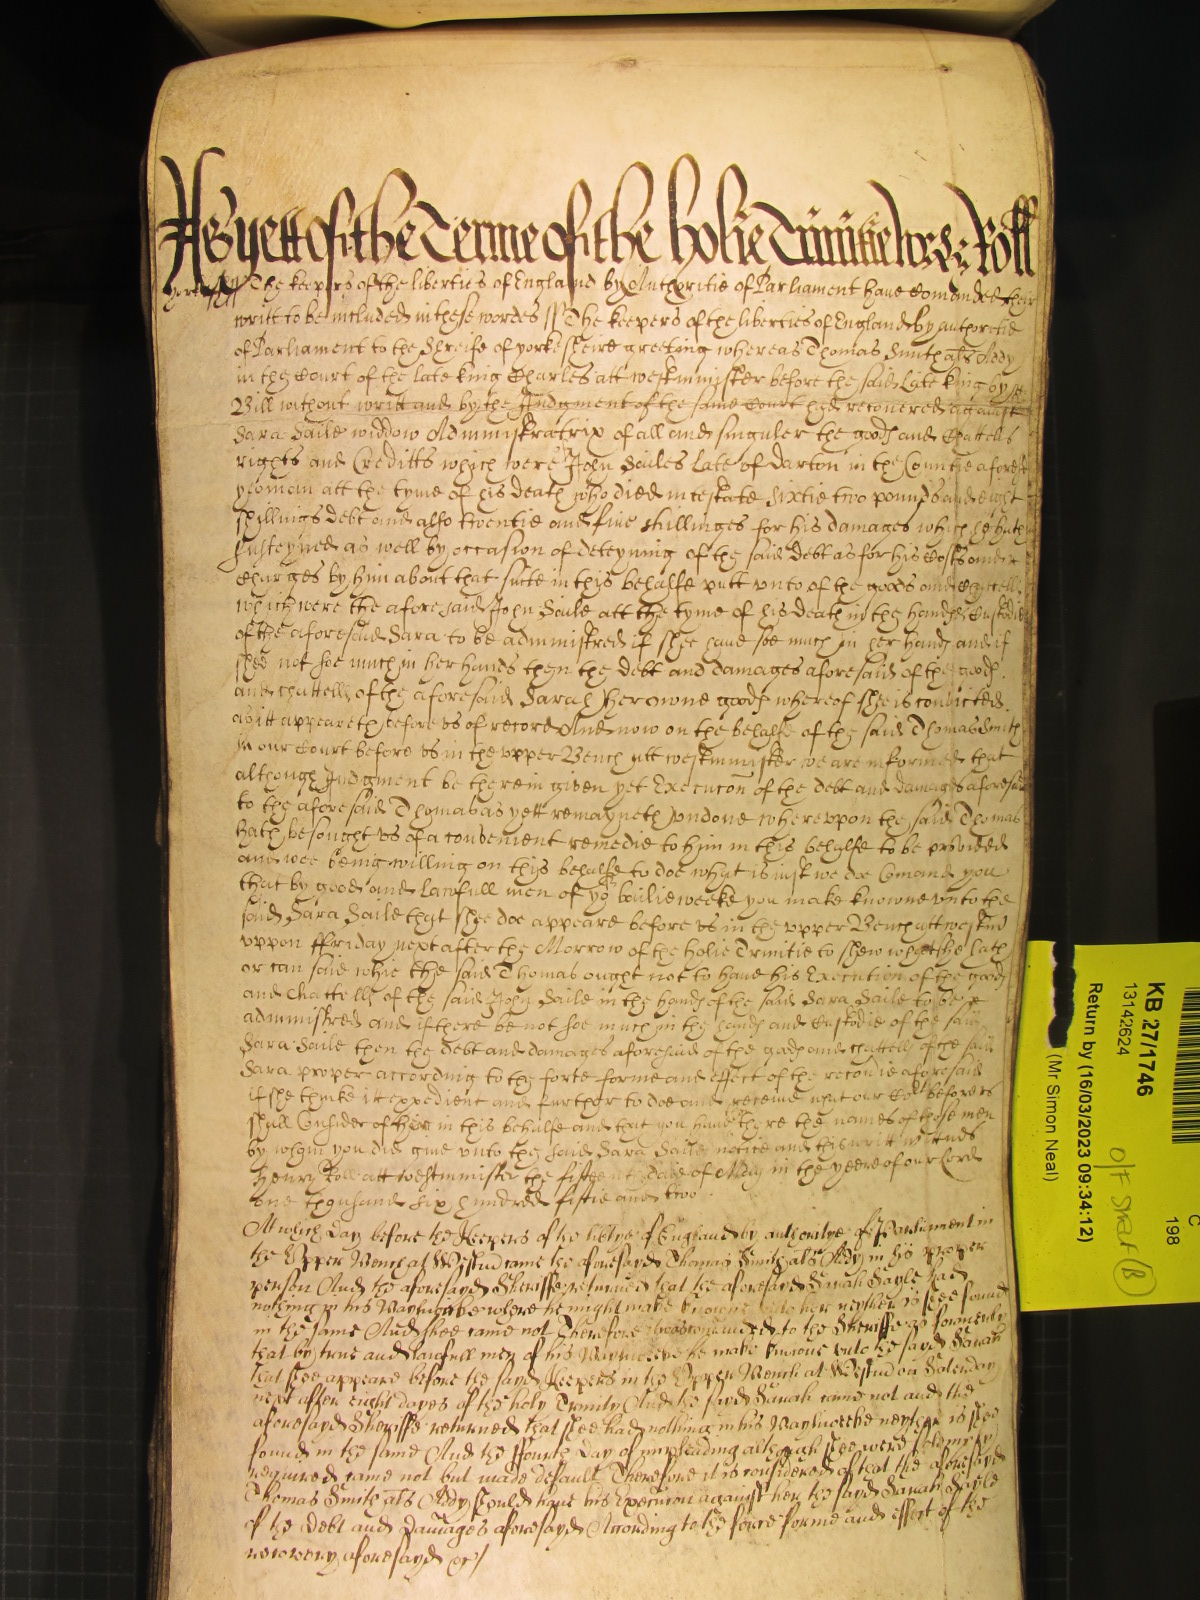 As yett of the Terme of the holie Trinitie Roll
Yorkes ss The keepers of the liberties of England by Authoritie of Parliament have Comanded their
writt to be included in these wordes ss The keepers of the liberties of England by authoritie
of Parliament to the Shreife of yorkesheire greeting whereas Thomas Smith als Addy
in the Court of the late king Charles att westminster before the said Late king by
Bill without writt and by the Judgment of the same Court had recovered against
Sara Saile widdow Administratrix of all and singuler the goods and Chattells
rights and Creditts which were John Sailes late of Darton in the Countie aforesd
yeoman att the tyme of his death who died intestate sixtie two pounds and eight
shillings debt and also twentie and five shillinges for his damages which he hath
susteyned as well by occasion of deteyning of the said debt as for his Costs and
Charges by him about that suite in this behalfe putt unto of the goods and Chattells
which were the aforesaid John Saile att the tyme of his death in the hands Custodie
of the aforesaid Sara to be administred if shee have soe much in her hands and if
shee not soe much in her hands then the debt and damages aforesaid of the goods
and chattells of the aforesaid Sarah her owne goods whereof shee is convicted
as itt appeareth before us of record And now on the behalfe of the said Thomas Smith
in our Court before us in the upper Bench att westminster we are informed that
although Judgment be therein given yet Execucon of the debt and damages aforesaid
to the aforesaid Thomas as yett remayneth undone whereupon the said Thomas
hath besought us of a convenient remedie to him in this behalfe to be provided
and wee being willing on this behalfe to doe what is just we doe Comand you
that by good and lawfull men of yor bailieweeke you make knowne unto the
said Sara Saile that shee doe appeare before us in the upper Bench att westmr
uppon ffriday next after the Morrow of the holie Trinitie to shew whatshe hath
or can said whie the said Thomas ought not to have his Execution of the goods
and Chattells of the said John Saile in the hands of the said Sara Saile to be
administred and if there be not soe much in the hands and Custodie of the said
Sara Saile then the debt and damages aforesaid of the goods and chattells of the said
Sara proper according to the forse forme and effect of the recovie aforesaid
if she thinke itt expedient and further to doe and receive what our Cort before us
shall Consider of her in this behalfe and that you have there the names of those men
by whom you did give unto the said Sara Saile notice and this writt wittnes
Henry Rolle att westminster the fifteent daie of May in the yeere of our Lord
one thousand six hundred fiftie and two
At which day before the Keepers of the libtye of England by authoritye of Parliament in
the Upper Bench at Westmr came the aforesayd Thomas Smith als Addy in his proper
person And the aforesayd Sheriffe returned that the aforesayd Sarah Sayle had
nothing in his Bayliwicke where he might make knowne unto her neyther is shee found
in the same And shee came not Therefore it was comanded to the Sheriffe as formerly
that by true and lawfull men of his Bayliwicke he make knowne unto the sayd Sarah
that shee appeare before the sayd Keepers in the Upper Bench at Westmr on Saterday
next after eight dayes of the holy Trinity And the sayd Sarah came not and the
aforesayd Sheriffe returned that shee had nothing in his Bayliwicke neyther is shee
found in the same And the ffourth day of impleading although shee were solemnly
required came not but made default Therefore it is considered of that the aforesayd
Thomas Smith als Addy should have his Execucon against her the sayd Sarah Sayle
of the debt and damages aforesayd According to the force forme and effect of the
recovery aforesayd &c
KB 27/1746
13142624
Return by (16/03/2023 09:34:12)
(Mr Simon Neal)
C
198